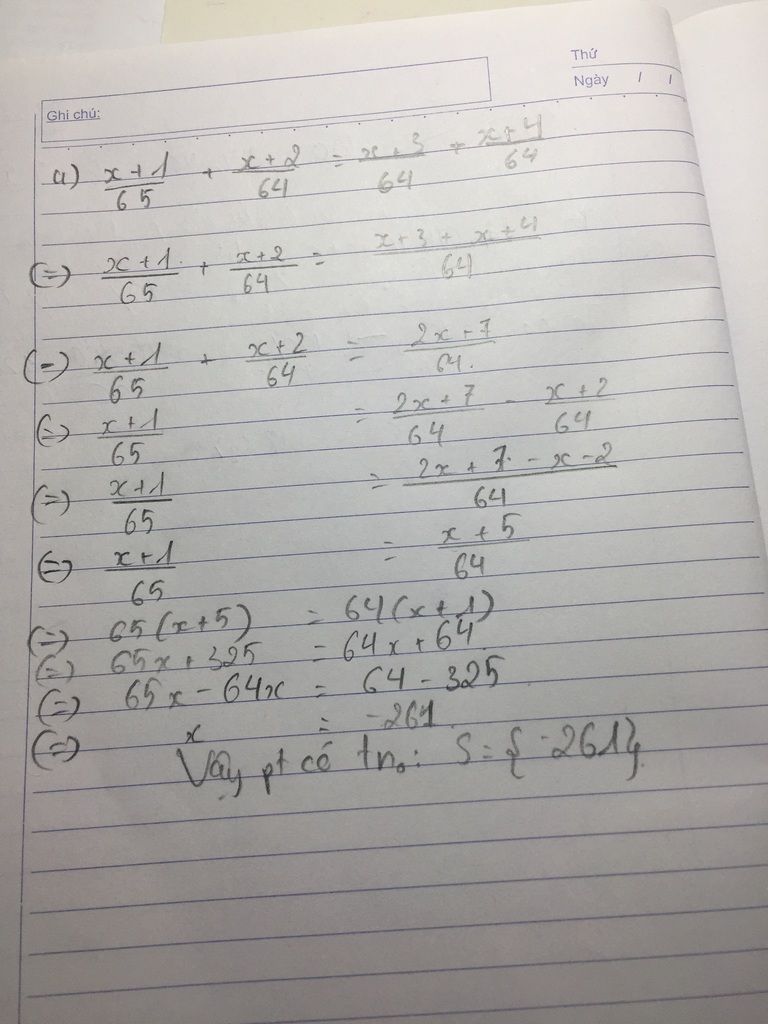 Thứ
Ngày / /
Ghi chú:
a) \frac{x+1}{65} + \frac{x+2}{64} = \frac{x+3}{64} + \frac{x+4}{64}
(=) \frac{x+1}{65} + \frac{x+2}{64} = \frac{x+3+x+4}{64}
(=) \frac{x+1}{65} + \frac{x+2}{64} = \frac{2x+7}{64}
(=) \frac{x+1}{65} = \frac{2x+7}{64} - \frac{x+2}{64}
(=) \frac{x+1}{65} = \frac{2x+7-x-2}{64}
(=) \frac{x+1}{65} = \frac{x+5}{64}
(=) 65(x+5) = 64(x+1)
(=) 65x+325 = 64x+64
(=) 65x-64x = 64-325
(=) x = -261
Vậy pt có tno: S={-261}